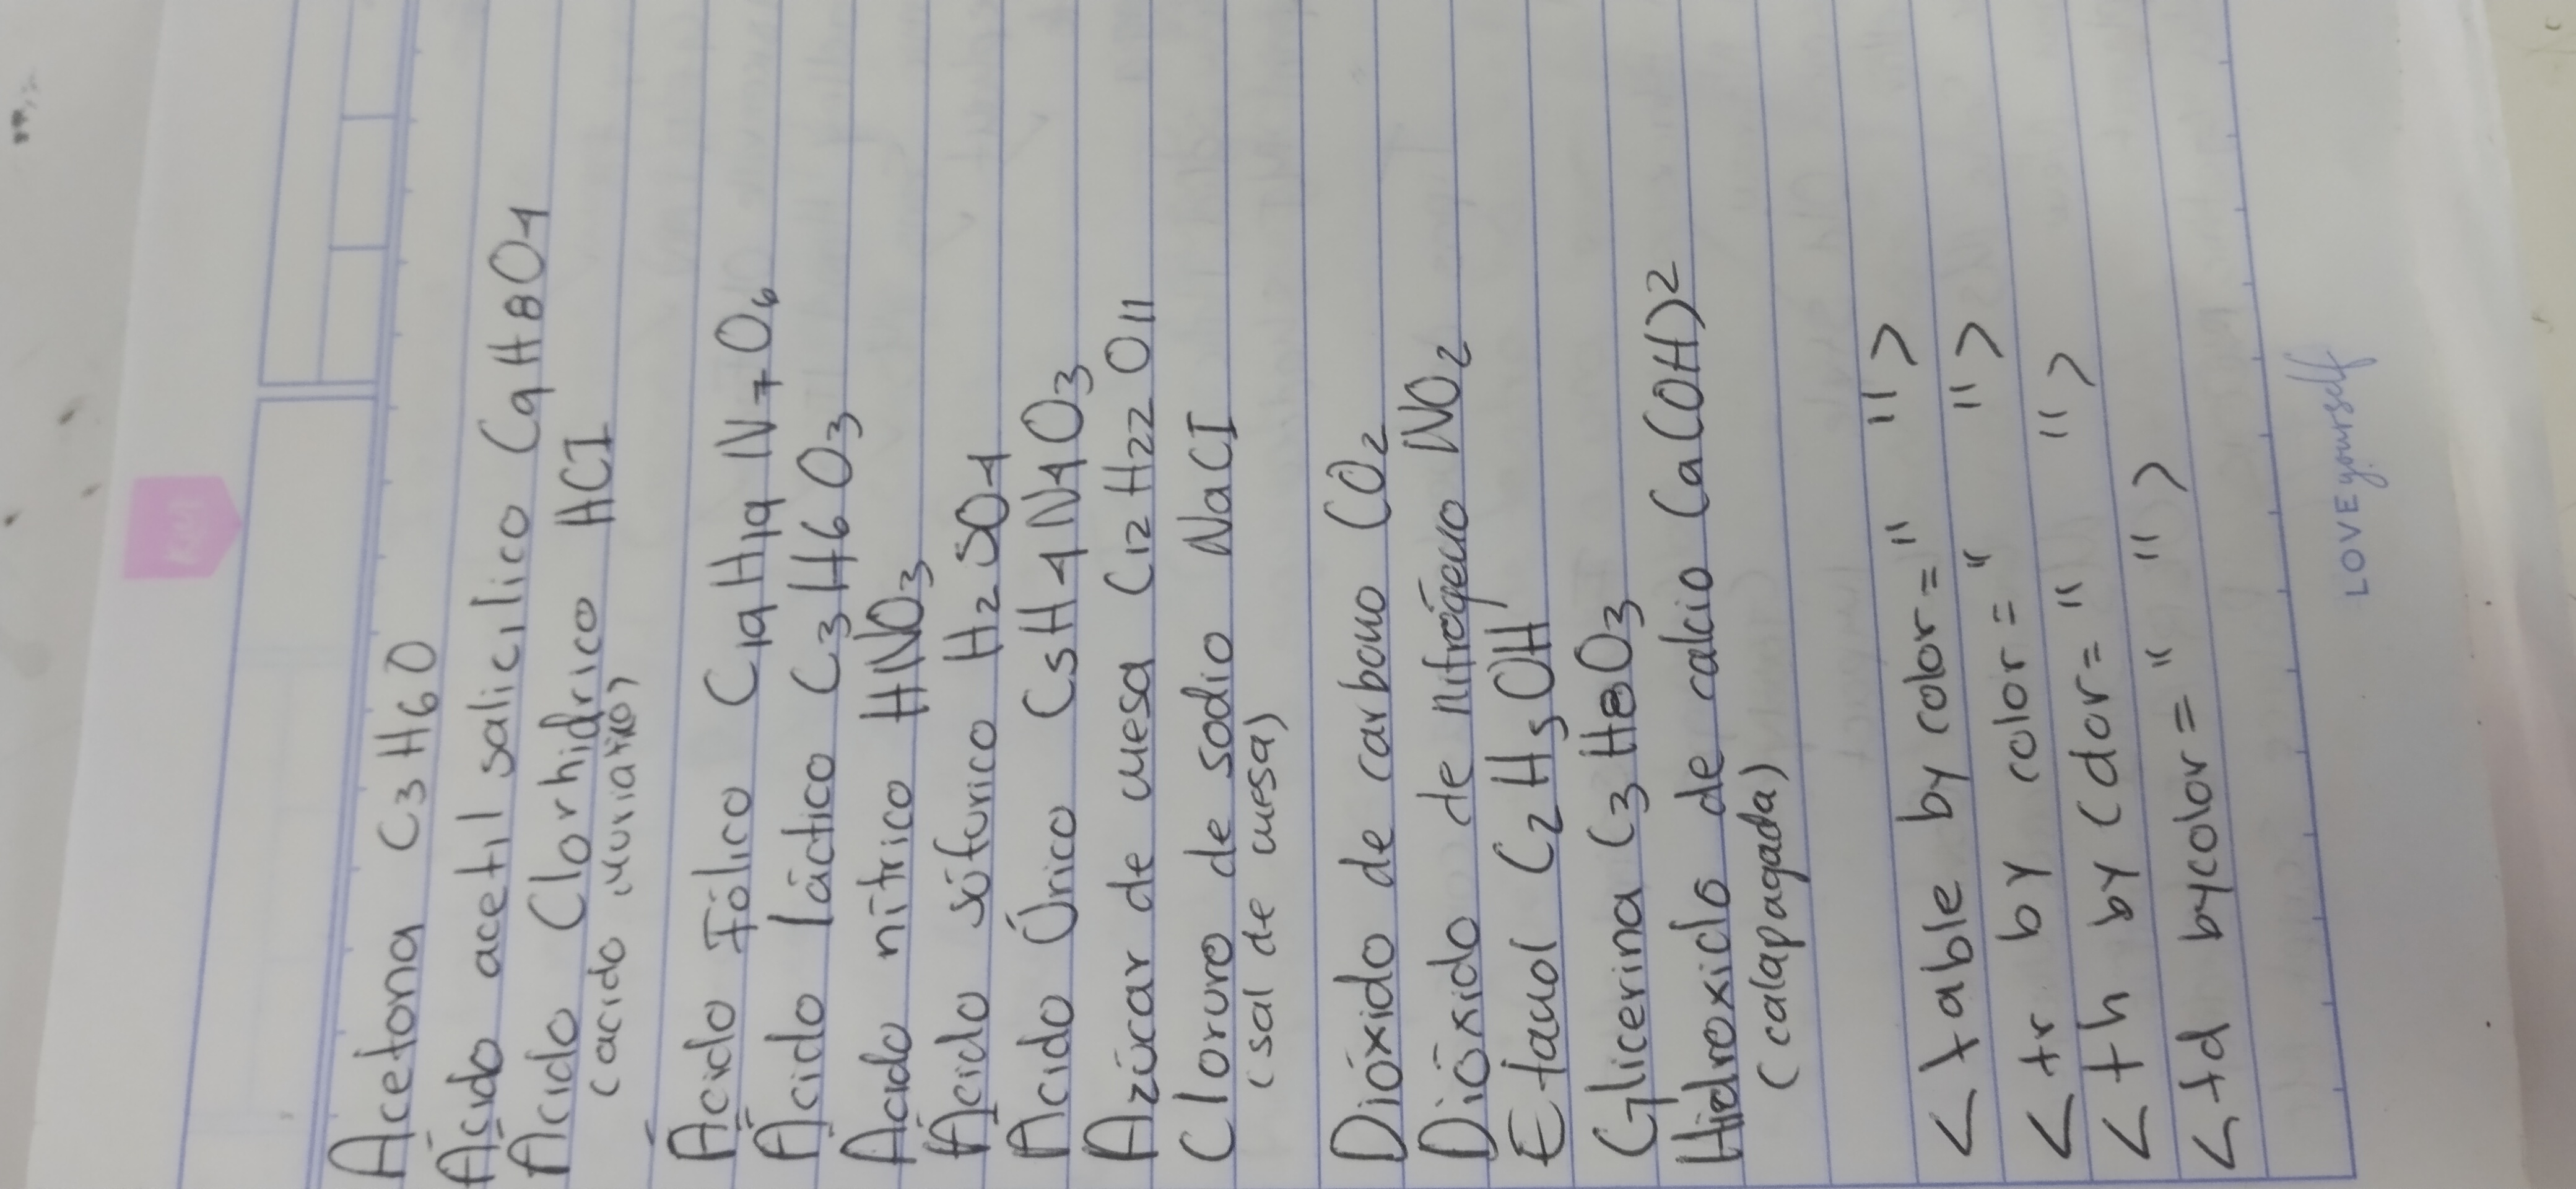 KIUT
Acetona C3H6O
Ácido acetil salicílico C9H8O4
Ácido Clorhidrico HCI
(acido muriatico)
Ácido Fólico C19H19N7O6
Ácido láctico C3H6O3
Ácido nítrico HNO3
Ácido súfurico H2SO4
Acido Úrico C5H4N4O3
Azúcar de mesa C12H22O11
Cloruro de sodio NaCI
(sal de mesa)
Dióxido de carbono CO2
Dióxido de nitrógeno NO2
Etanol C2H5OH
Glicerina C3H8O3
Hidroxido de calcio Ca(OH)2
(calapagada)
<table by color=" ">
<tr by color=" ">
<th by color=" ">
<td bycolor=" ">
LOVE yourself